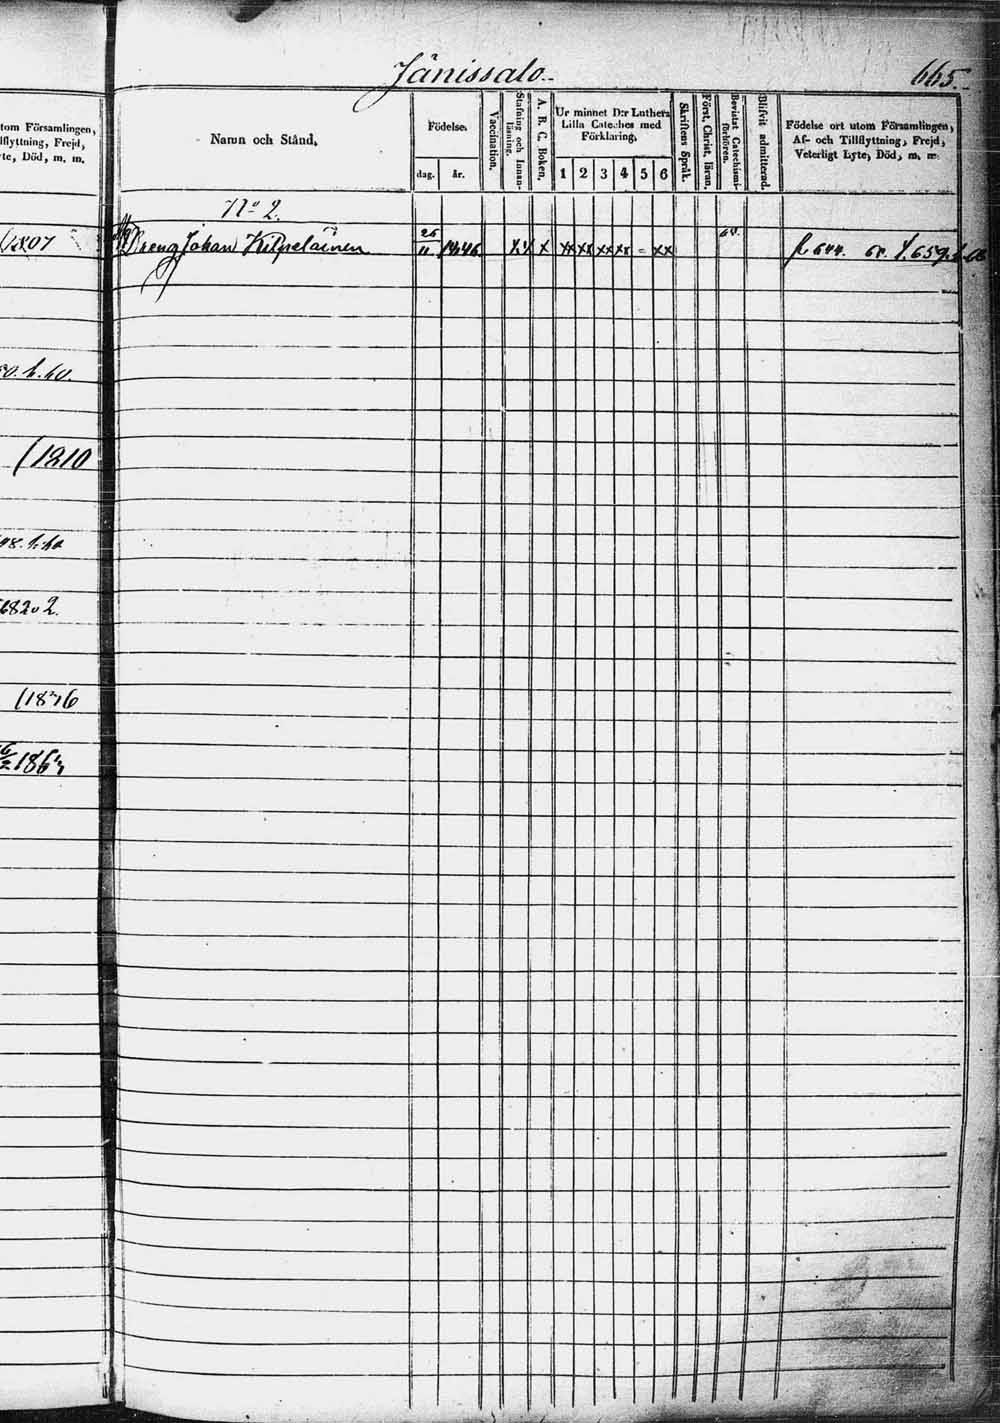 Jänissalo.
665.
tom Församlingen,
flyttning, Frejd,
te, Död, m. m.
Namn och Stånd.
Födelse.
dag.
år.
Vaccination.
Stafning och Innanläsning.
A. B. C. Boken.
Ur minnet D:r Luthers
Lilla Cateches med
Förklaring.
1 2 3 4 5 6
Skriftens Språk.
Först. Christ. läran.
Bevistat Catechismiförhören.
Blifvit admitterad.
Födelse ort utom Församlingen,
Af- och Tillflyttning, Frejd,
Veterligt Lyte, Död, m. m.
No 2.
Dreng Johan Kilpeläinen 25/11 1846. x x x xx xx xx xx = xx 68. f. 644. 68. f. 659.
(1210
6820 2.
(1876